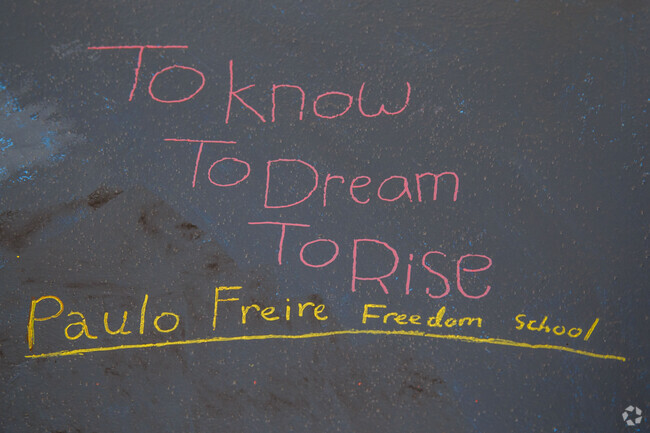 To Know
To Dream
To Rise
Paulo Freire Freedom School